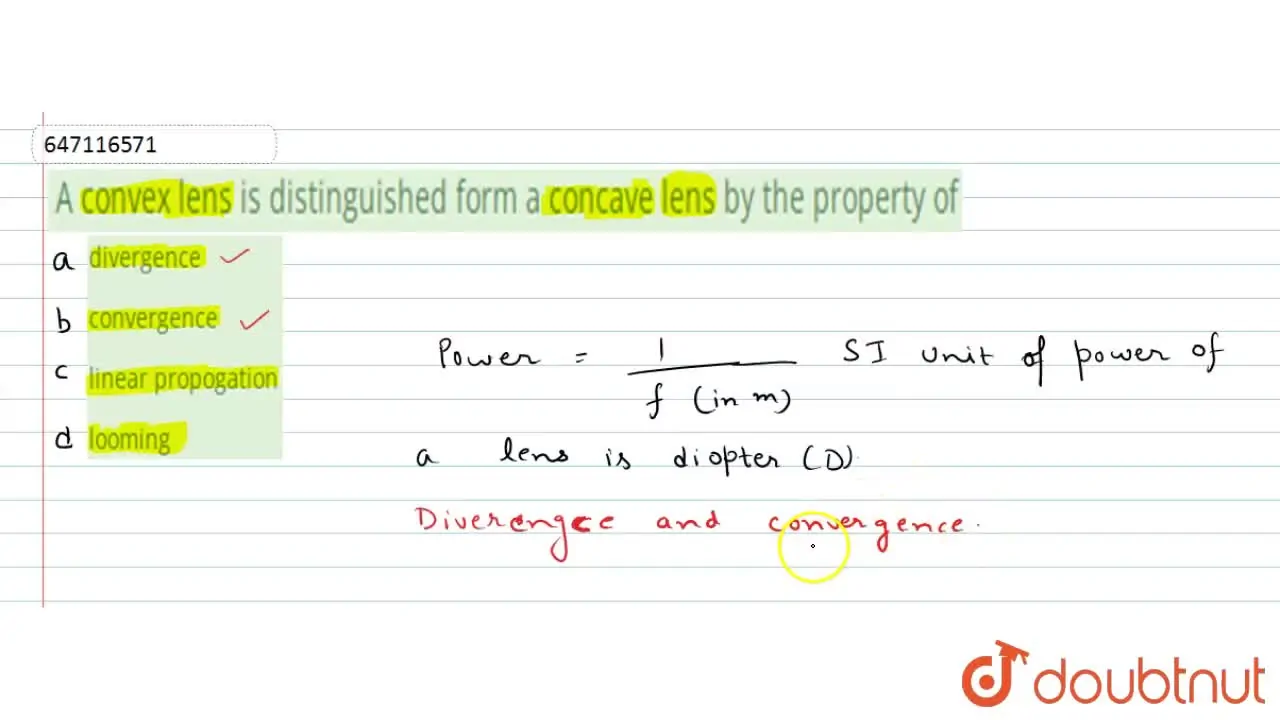 647116571
A convex lens is distinguished form a concave lens by the property of
a divergence ✓
b convergence ✓
c linear propogation
d looming
Power = 1 / f (in m) SI unit of power of
a lens is diopter (D)
Diverengce and convergence.
doubtnut